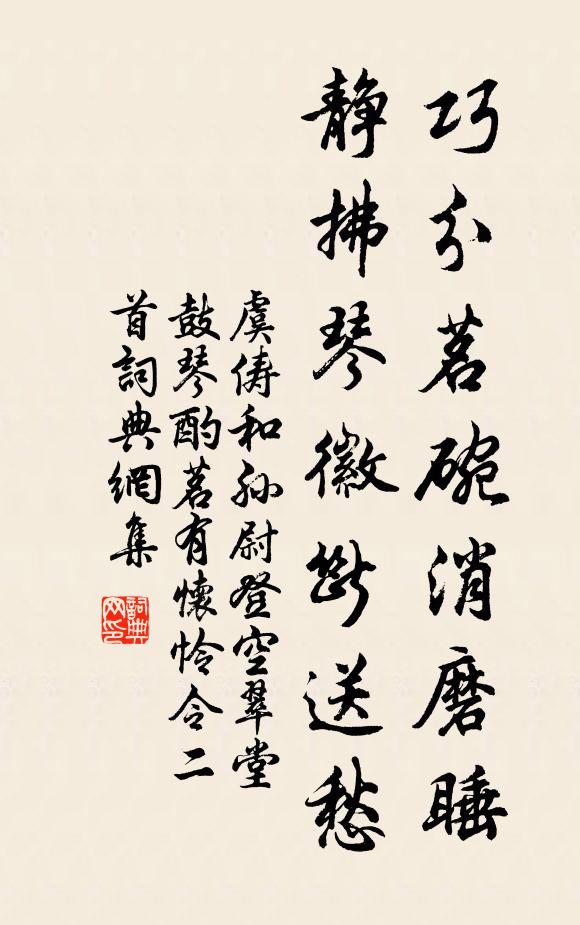 巧分茗碗消磨睡
静拂琴徽断送愁
虞俦和孙尉登空翠堂
鼓琴酌茗有懷怜令二
首詞典網集
詞典网印